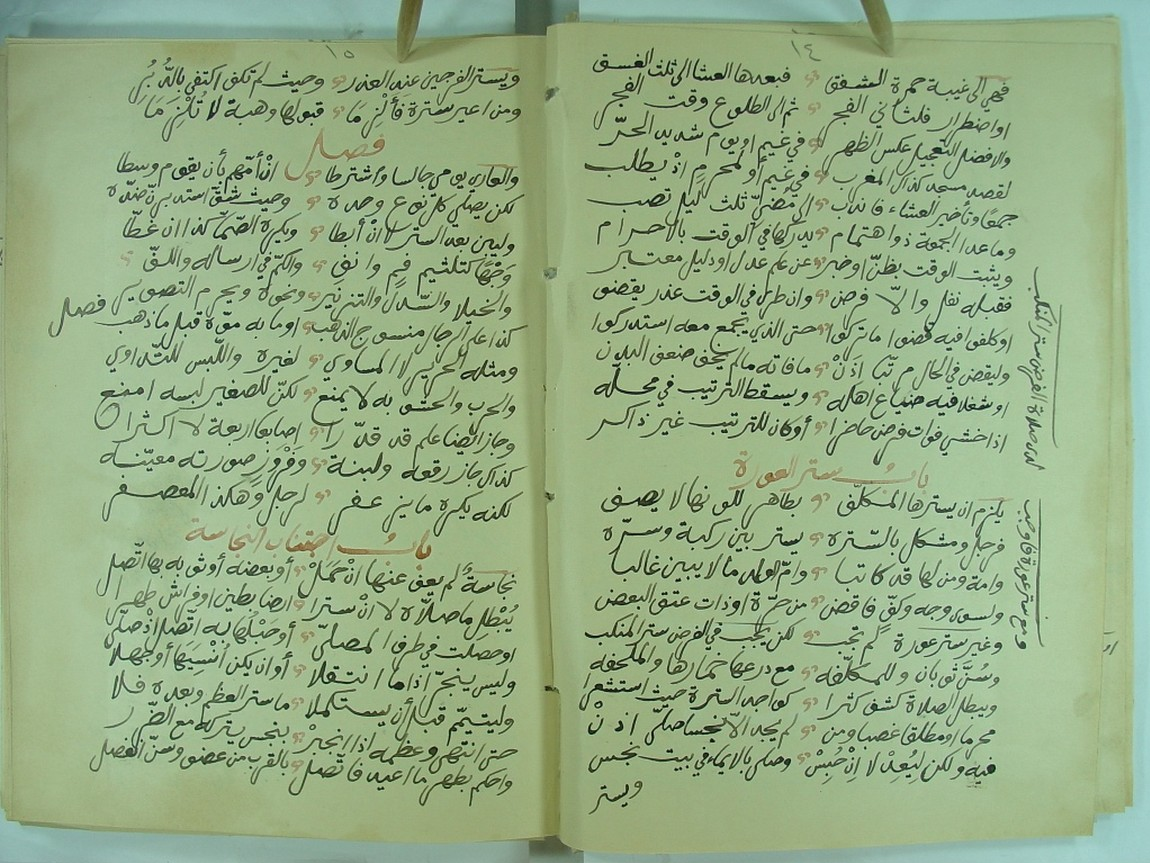 ١٤
فهي الى غيبة حمرة الشفق فبعدها العشا الى ثلث الغسق
او اضطرار فلثاني الفجر ثم الى الطلوع وقت الفجر
والافضل التعجيل عكس الظهر في غيم او يوم شديد الحرّ
لقصد مسجد كذا المغرب في غيم أو لمحرم إذ يطلب
جمعًا وتأخير العشاء فاندب الى مضيّ ثلث ليل تصب
وما عدا الجمعة ذو اهتمام يدركها في الوقت بالاحرام
ويثبت الوقت بظنّ او خبر عن علم عدل او دليل معتبر
فقبله نفل والّا فرض وان طرى في الوقت عذر يقضو
او كلفوا فيه قضوا ما تركوا حتى الذي يجمع معه استدركوا
وليقض في الحال مرتبا اذن ما فاته ما لم يحق ضعف البدن
او شغلا فيه ضياع اهله ويسقط الترتيب في محلّه
اذا خشي فوات فرض حاضرا أو كان للترتيب غير ذاكر
باب ستر العورة
يلزم ان يسترها المكلّف بطاهر للونها لا يصف
فرجل ومشكل بالسترة يستر بين ركبة وسرّه
وامة ومن لها قد كاتبا وامّ اولد ما لا يبين غالبا
ولسوى وجه وكفّ فاقض من حرّة او ذات عتق البعض
وغير ستر عورة لم تجب لكن يجب في الفرض ستر المنكب
وسنّ ثوبان وللمكلّفه مع درعها خمارها والملحفه
ويبطل الصلاة كشف كثرا كواجد السترة حيث استشعرا
محرما او مطلقا غصبا ومن لم يجد الّا نجسا صلّى اذن
فيه ولكن ليُعِدْ لا إن حُبِسْ وصلى بالايماء في بيت نجس
ويستر
لدى صلاة الفرض ستر المنكب
ومع ستر عورة فاوجب
١٥
ويستر الفرجين عند العذر وحيث لم تكف اكتفى بالدُّبُرِ
ومن اعير سترة فأُلْزِمَا قبولها وهبة لا تُلْزِمَا
فصل
والعاري يومي جالسا واشترطا إن أمّهم بأن يقوم وسطا
لكن يصلي كل نوع وحده وحيث شقّ استدبرنّ ضدّه
وليبن بعد الستر لا ان أبطا ويكره الصمّا كذا ان غطّا
وجهًا كتلثيم فم وانف والكمّ في ارساله واللفّ
والخيلا والسّدل والتزنير ونحوه ويحرم التصوير
فصل
كذا على الرجال منسوج الذهب او ما به موّه قبل ما ذهب
ومثله الحرير لا المساوي لغيره واللبس للتداوي
والحرب والحشو به لا يمنع لكنّ للصغير لبسه امنع
وجاز ايضا علم قد قدّرا إصابعا اربعة لا اكثرا
كذاك جاز رقعه ولبنة وفروز صورته معيّنه
لكنه يكره ما يزعفر لرجل وهكذا المعصفر
باب اجتناب النجاسة
نجاسةً لم يعف عنها انْ حَمَلْ أو بعضه أو ثوبه بها اتّصل
يُبْطِل ما صلّاه لا انْ سترا ارضا بطين او فراش طهر
او حصلت في طرف المصلّى أو حَبْلُهَا به اتصل اذ صلّى
وليس ينجرّ اذا ما انتقلا أو ان يكن أُنْسِيَهَا أو جهلا
وليتيمّم قبل أن يستكملا ما ستر العظم وبعده فلا
حتى انتهى وعظمه اذا انجبر بنجس يتركه مع الضّرر
واحكم بطهر ما اعيد فاتّصل بالقرب من عضو وسنّ انفصل